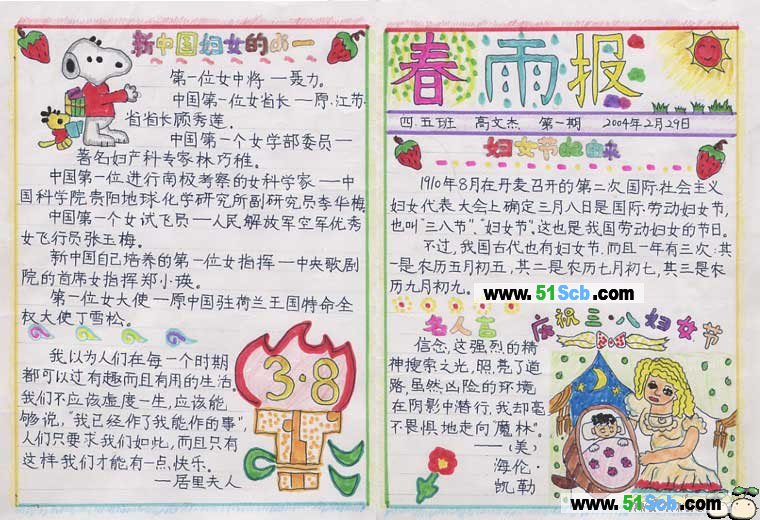 新中国妇女的第一
第一位女中将——聂力。
中国第一位女省长——原江苏
省省长顾秀莲。
中国第一个女学部委员——
著名妇产科专家林巧稚。
中国第一位进行南极考察的女科学家——中
国科学院贵阳地球化学研究所副研究员李华梅
中国第一个女试飞员——人民解放军空军优秀
女飞行员张玉梅。
新中国自己培养的第一位女指挥——中央歌剧
院的首席女指挥郑小瑛。
第一位女大使——原中国驻荷兰王国特命全
权大使丁雪松。
我以为人们在每一个时期
都可以过有趣而且有用的生活。
我们不应该虚度一生,应该能
够说,“我已经作了我能作的事”,
人们只要求我们如此,而且只有
这样我们才能有一点快乐。
——居里夫人
3·8
春雨报
四.五班 高文杰 第一期 2004年2月29日
妇女节的由来
1910年8月在丹麦召开的第二次国际社会主义
妇女代表大会上确定三月八日是国际劳动妇女节,
也叫“三八节”、“妇女节”。这也是我国劳动妇女的节日。
不过,我国古代也有妇女节.而且一年有三次:其
一是农历五月初五,其二是农历七月初七,其三是农
历九月初九。
www.51Scb.com
名人言
信念,这强烈的精
神搜索之光,照亮了道
路,虽然凶险的环境
在阴影中潜行,我却毫
不畏惧地走向“魔林”。
——(美)
海伦·
凯勒
庆祝三·八妇女节
www.51Scb.com